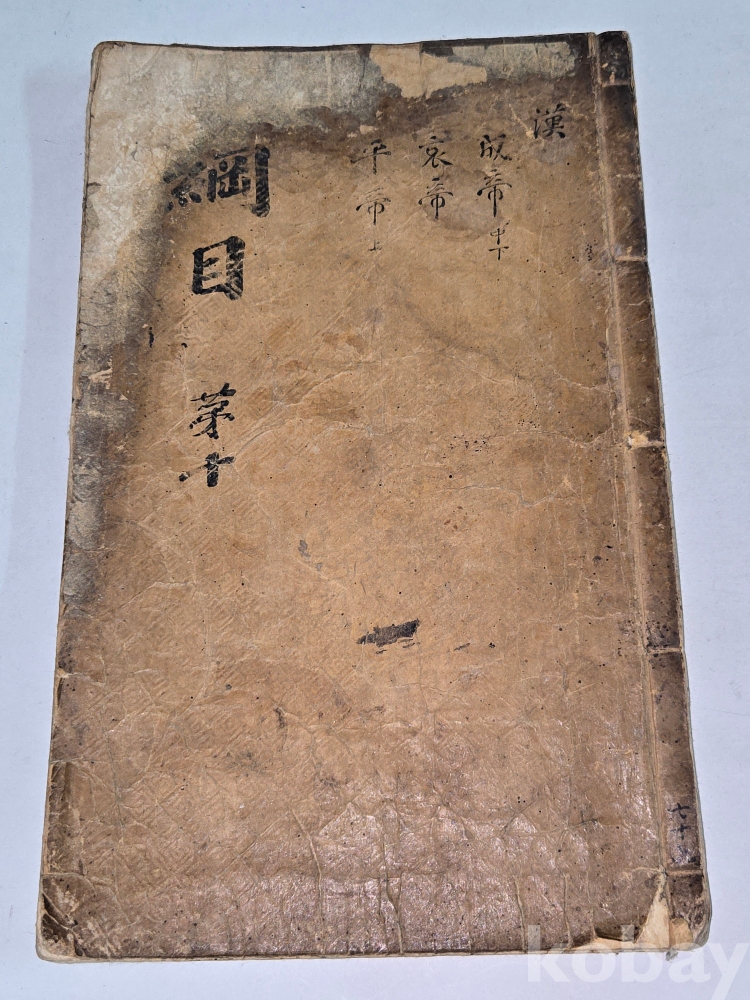 漢
成帝中下
哀帝
平帝上
綱目 第十
七十
kobay